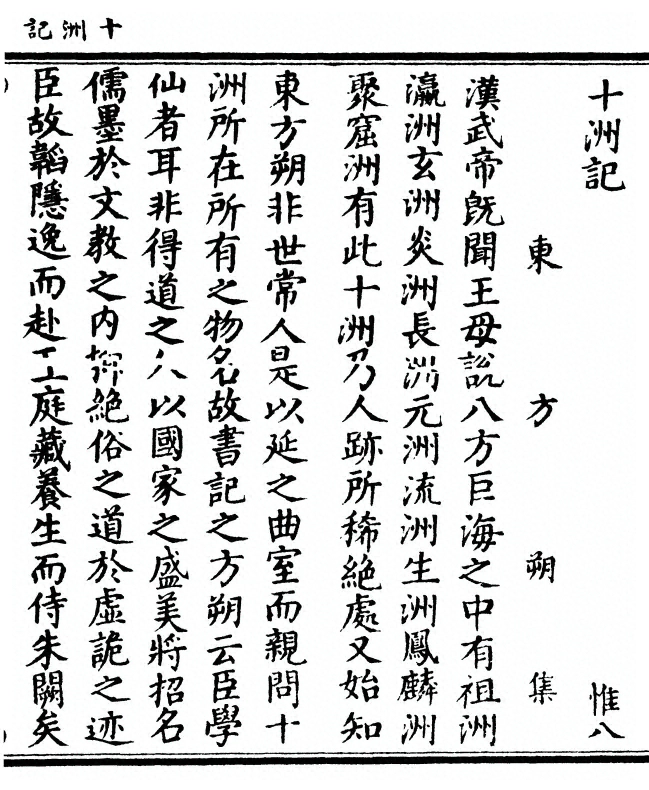 十洲記
十洲記
惟八
東方朔集
漢武帝旣聞王母說八方巨海之中有祖洲
瀛洲玄洲炎洲長洲元洲流洲生洲鳳麟洲
聚窟洲有此十洲乃人跡所稀絕處又始知
東方朔非世常人是以延之曲室而親問十
洲所在所有之物名故書記之方朔云臣學
仙者耳非得道之人以國家之盛美將招名
儒墨於文教之内抑絕俗之道於虛詭之迹
臣故韜隱逸而赴王庭藏養生而侍朱闕矣